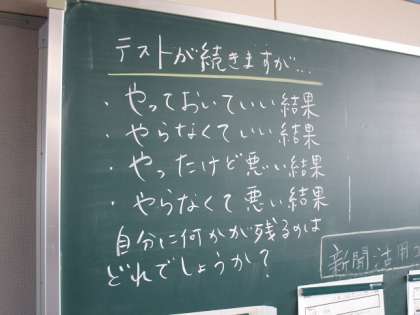 テストが続きますが…
・やっておいていい結果
・やらなくていい結果
・やったけど悪い結果
・やらなくて悪い結果
自分に何かが残るのは
どれでしょうか?
新聞活用